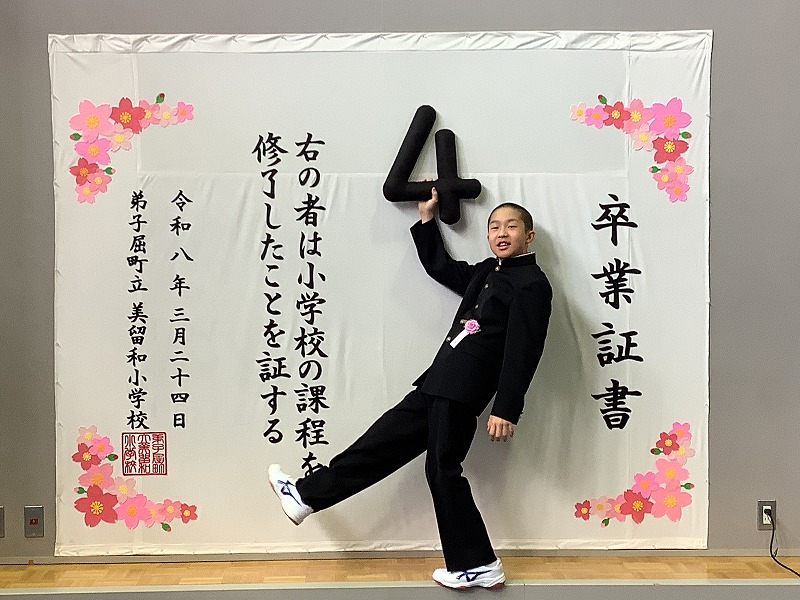 卒業証書
4
右の者は小学校の課程を
修了したことを証する
令和八年三月二十四日
弟子屈町立 美留和小学校